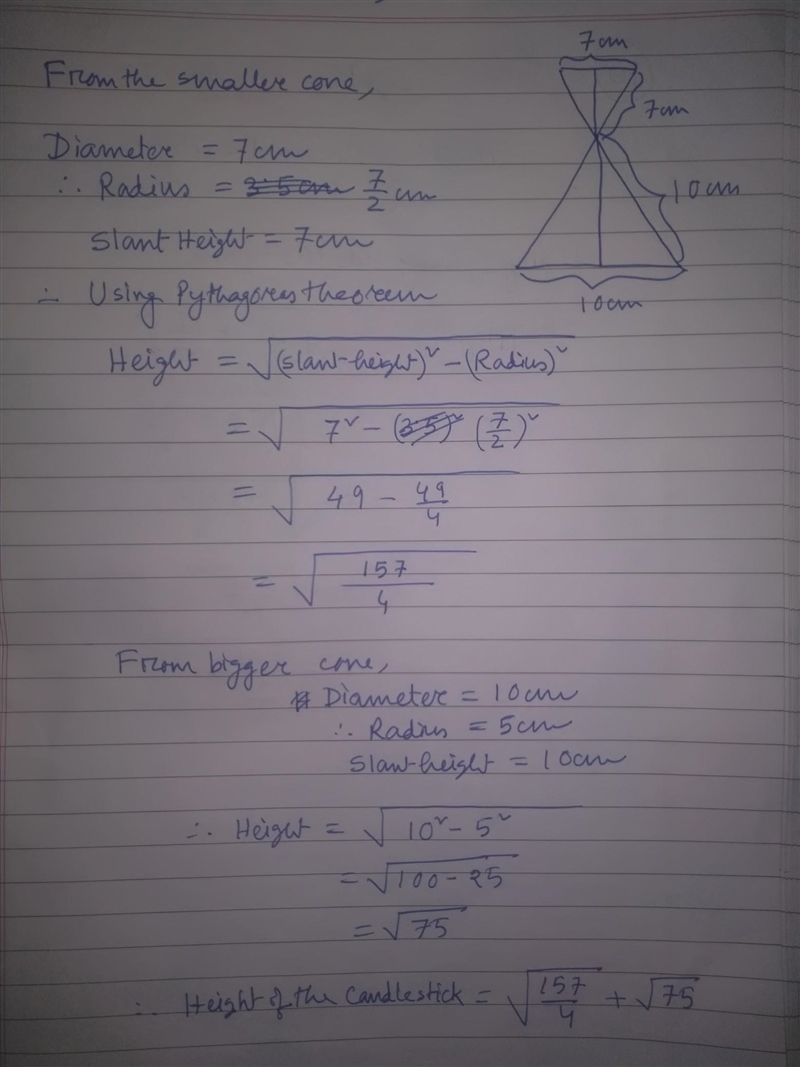 7cm
From the smaller cone,
7cm
Diameter = 7cm
∴ Radius = ~~3.5cm~~ 7/2 cm
10cm
Slant Height = 7cm
∴ Using Pythagoras theorem
10cm
Height = √((slant-height)² − (Radius)²)
= √(7² − ~~(3.5)²~~ (7/2)²)
= √(49 − 49/4)
= √(157/4)
From bigger cone,
Diameter = 10cm
∴ Radius = 5cm
Slant-height = 10cm
∴ Height = √(10² − 5²)
= √(100 − 25)
= √75
∴ Height of the Candlestick = √(157/4) + √75